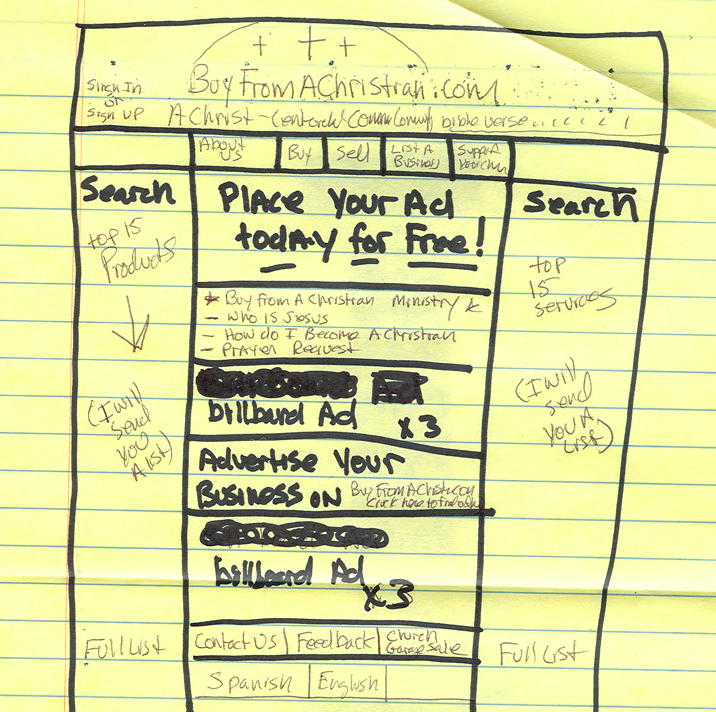 + + +
Sign In
or
Sign UP
BuyFromAChristian.com
A Christ-Centerd Community bible verse..........
About
Us
Buy
Sell
List A
Business
Support
Your Chur
Search
top 15
Products
(I will
send
you
A list)
Full List
PlAce Your Ad
todAy for Free!
* Buy from A Christian Ministry *
- Who is Jesus
- How do I Become A Christian
- Prayer Request
Ad
billbard Ad
x 3
Advertise Your
Business on BuyFromAChrist.com
Click here to find out
billbard Ad
x3
Contact Us
Feedback
Church
Garage Sale
Spanish
English
Search
top
15
services
(I will
send
you A
List)
Full List